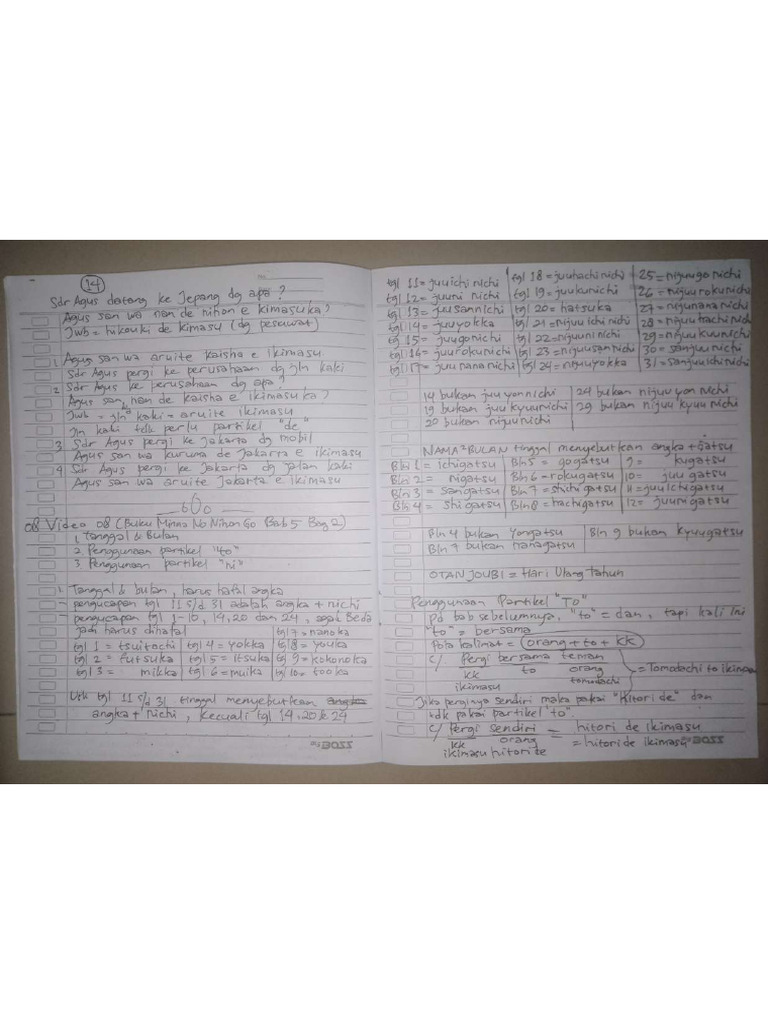 No.
14
Sdr Agus datang ke Jepang dg apa?
Agus san wa nan de nihon e kimasuka?
Jwb = hikouki de kimasu (dg pesawat)
1 Agus san wa aruite kaisha e ikimasu
Sdr Agus pergi ke perusahaan dg jln kaki
2 Sdr Agus ke perusahaan dg apa?
Agus san nan de kaisha e ikimasuka?
Jwb = jln kaki = aruite ikimasu
Jln kaki tdk perlu partikel "de"
3 Sdr Agus pergi ke Jakarta dg mobil
Agus san wa kuruma de Jakarta e ikimasu
4 Sdr Agus pergi ke Jakarta dg jalan kaki
Agus san wa aruite Jakarta e ikimasu
08 Video 08 (Buku Minna No Nihon Go Bab 5 Bag 2)
1 Tanggal & Bulan
2 Penggunaan partikel "to"
3 Penggunaan partikel "ni"
1 Tanggal & bulan, harus hafal angka
- pengucapan tgl 11 s/d 31 adalah angka + nichi
- pengucapan tgl 1-10, 14, 20 dan 24, agak beda
jadi harus dihafal
tgl 7 = nanoka
tgl 1 = tsuitachi tgl 4 = yokka tgl 8 = youka
tgl 2 = futsuka tgl 5 = itsuka tgl 9 = kokonoka
tgl 3 = mikka tgl 6 = muika tgl 10 = tooka
Utk tgl 11 s/d 31 tinggal menyebutkan
angka + nichi, kecuali tgl 14, 20 & 24
BOSS
tgl 11 = juuichi nichi tgl 18 = juuhachi nichi 25 = nijuugo nichi
tgl 12 = juuni nichi tgl 19 = juukunichi 26 = nijuurokunichi
tgl 13 = juusannichi tgl 20 = hatsuka 27 = nijuunana nichi
tgl 14 = juuyokka tgl 21 = nijuuichi nichi 28 = nijuu hachi nichi
tgl 15 = juugonichi tgl 22 = nijuuni nichi 29 = nijuu kuunichi
tgl 16 = juurokunichi tgl 23 = nijuusan nichi 30 = sanjuu nichi
tgl 17 = juunana nichi tgl 24 = nijuuyokka 31 = sanjuuichi nichi
14 bukan juuyonnichi 24 bukan nijuu yon nichi
19 bukan juu kyuunichi 29 bukan nijuu kyuu nichi
20 bukan nijuunichi
NAMA² BULAN tinggal menyebutkan angka + gatsu
Bln 1 = ichigatsu Bln 5 = gogatsu 9 = kugatsu
Bln 2 = nigatsu Bln 6 = rokugatsu 10 = juugatsu
Bln 3 = sangatsu Bln 7 = shichigatsu 11 = juuichigatsu
Bln 4 = shigatsu Bln 8 = hachigatsu 12 = juunigatsu
Bln 4 bukan yongatsu Bln 9 bukan kyuugatsu
Bln 7 bukan nanagatsu
OTANJOUBI = Hari Ulang Tahun
Penggunaan Partikel "TO"
pd bab sebelumnya, "to" = dan, tapi kali ini
"to" = bersama
Pola kalimat = orang + to + kk
c/ Pergi bersama teman
kk to orang = Tomodachi to ikimasu
ikimasu tomodachi
Jika perginya sendiri maka pakai "Hitori de" dan
tdk pakai partikel "to"
c/ Pergi sendiri = hitori de ikimasu
kk orang = hitori de ikimasu
ikimasu hitoride
BOSS